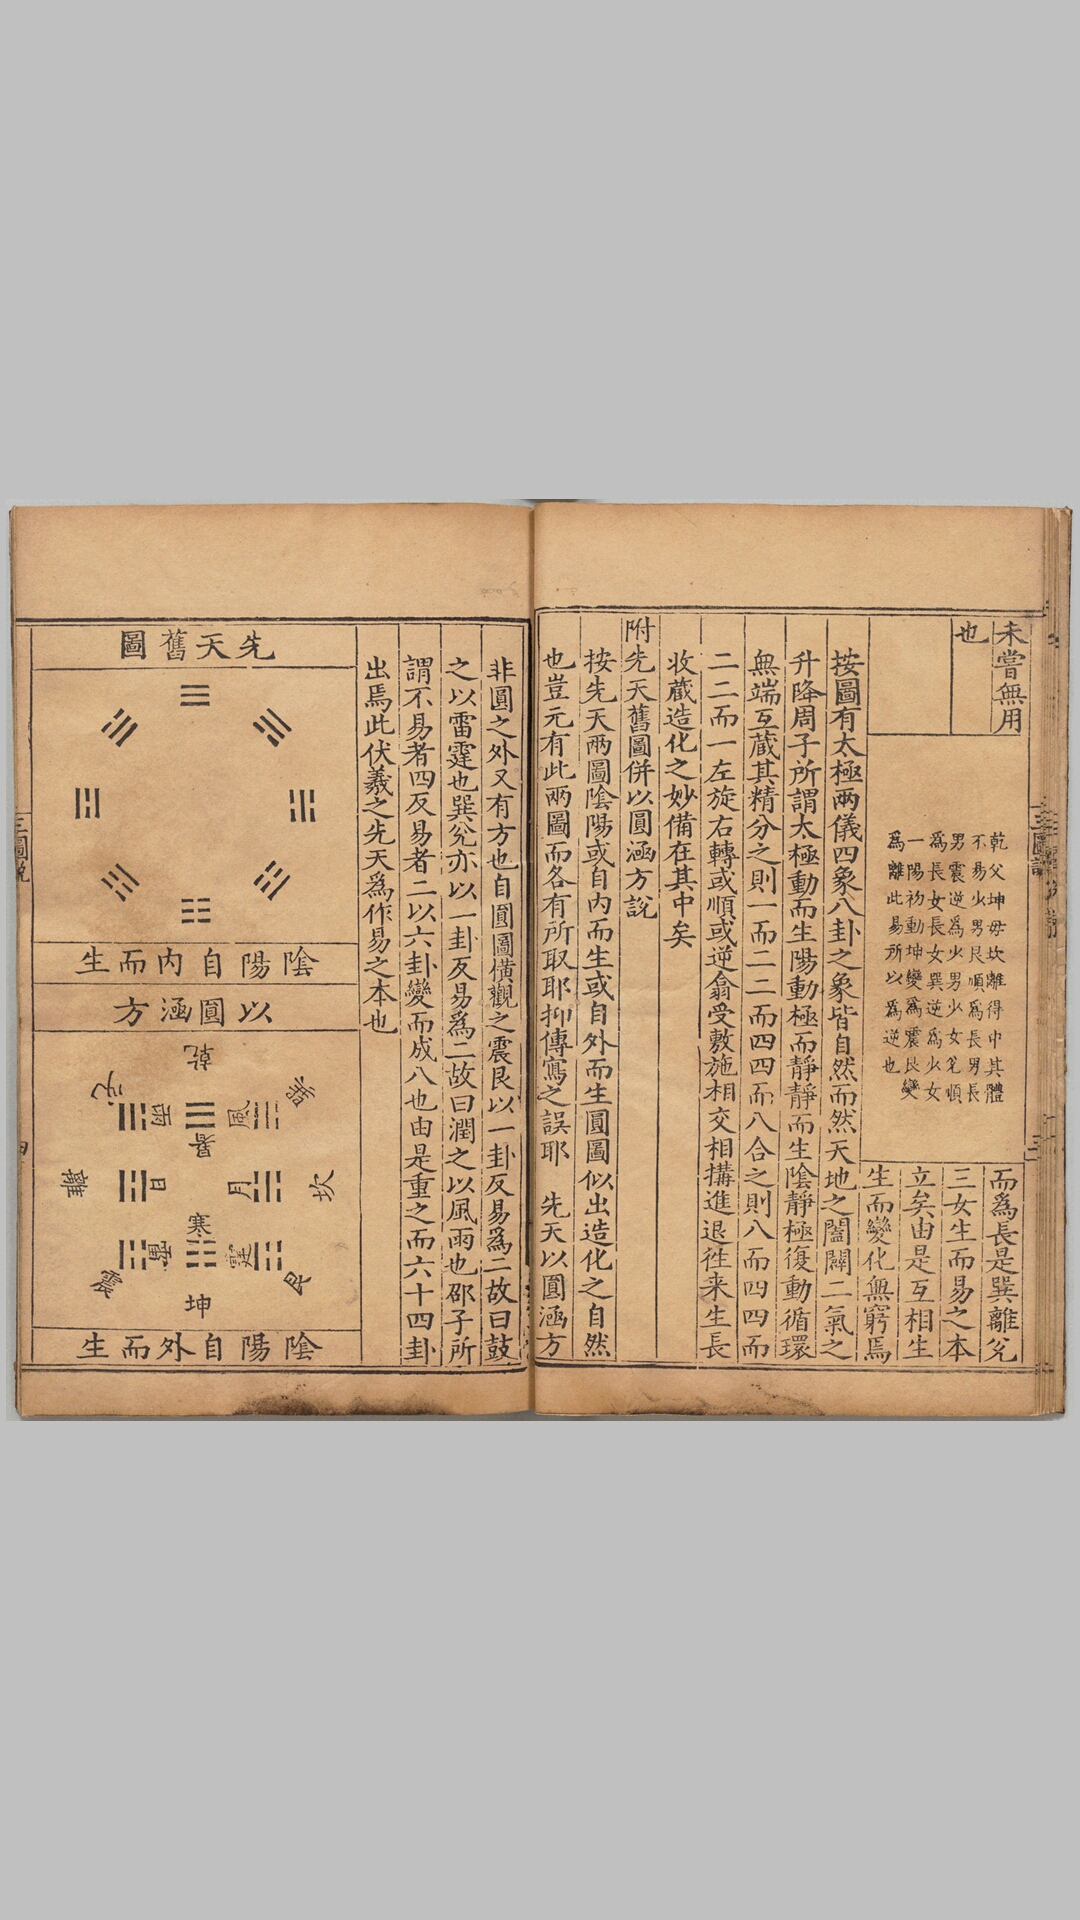 未嘗無用
也
乾父坤毋坎離得中其體
不易少男艮順為長男長
男震逆為少男少女兊順
為長女長女巽逆為少女
一陽初動坤變為震艮變
為離此易所以為逆也
而為長是巽離兊
三女生而易之本
立矣由是互相生
生而變化無窮焉
按圖有太極兩儀四象八卦之象皆自然而然天地之闔闢二氣之
升降周子所謂太極動而生陽動極而靜靜而生陰靜極復動循環
無端互蔵其精分之則一而二二而四四而八合之則八而四四而
二二而一左旋右轉或順或逆翕受敷施相交相搆進退徃来生長
收蔵造化之妙備在其中矣
附先天舊圖併以圓涵方說
按先天兩圖陰陽或自内而生或自外而生圓圖似出造化之自然
也豈元有此兩圖而各有所取耶抑傳寫之誤耶 先天以圓涵方
三圖說
三
非圓之外又有方也自圓圖橫觀之震艮以一卦反易為二故曰鼓
之以雷霆也巽兊亦以一卦反易為二故曰潤之以風雨也邵子所
謂不易者四反易者二以六卦變而成八也由是重之而六十四卦
出焉此伏羲之先天為作易之本也
先天舊圖
陰陽自内而生
以圓涵方
乾
兊
巽
雨
風
暑
離
日
月
坎
寒
雷
霆
震
艮
坤
陰陽自外而生
三圖說
四